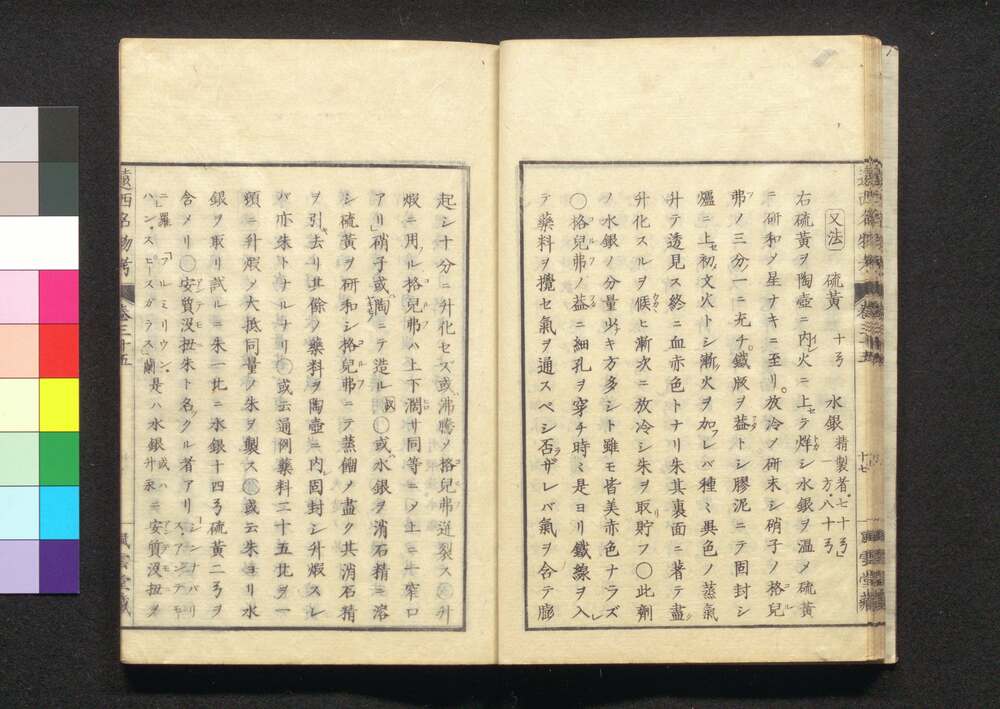 又法 硫黄 十ゟ 水銀 精製者七十ゟ 一方八十ゟ
右硫黄ヲ陶壺ニ内火ニ上テ烊シ水銀ヲ温メ硫黄
ニ研和ノ星ナキニ至リ放冷ノ研末シ硝子ノ格兒
弗ノ三分ノ一ニ充チ鐵版ヲ葢トシ膠泥ニテ固封シ
爐ニ上初文火トシ漸火ヲ加レバ種ミ異色ノ蒸氣
升テ透見ス終ニ血赤色トナリ朱其裏面ニ著テ盡
升化スルヲ候ヒ漸次ニ放冷シ朱ヲ取貯フ〇此劑
ノ水銀ノ分量少キ方多シト雖モ皆美赤色ナラズ
〇格兒弗ノ葢ニ細孔ヲ穿チ時ミ是ヨリ鐵線ヲ入
テ藥料ヲ攪セ氣ヲ通スベシ否ザレバ氣ヲ合テ膨
十七
起シ十分ニ升化セズ或沸騰ノ格兒弗迸裂ス 升
煆ニ用ル格兒弗ハ上下濶サ同等ニノ上ニ一窄口
アリ硝子或陶ニテ造ル 〇或水銀ヲ消石精ニ溶
シ硫黄ヲ研和シ格兒弗ニテ蒸餾ノ盡ク其消石精
ヲ引去リ其餘ノ藥料ヲ陶壺ニ内固封シ升煆スレ
バ亦朱トナルナリ 或云通例藥料二十五ヒヲ一
頓ニ升煆ノ大抵同量ノ朱ヲ製ス 或云朱ヨリ水
銀ヲ取リ試ルニ朱一ヒニ水銀十四ゟ硫黄二ゟヲ
含メリ〇安質没扭朱ト名クル者アリ シンナバリス・アンテモ
ニ羅 アルミリウン 或ハ
ハン・スピースガラス 蘭 是ハ水銀升汞ニ安質没扭ヲ
遠西名物考 卷三十五 風雲堂藏